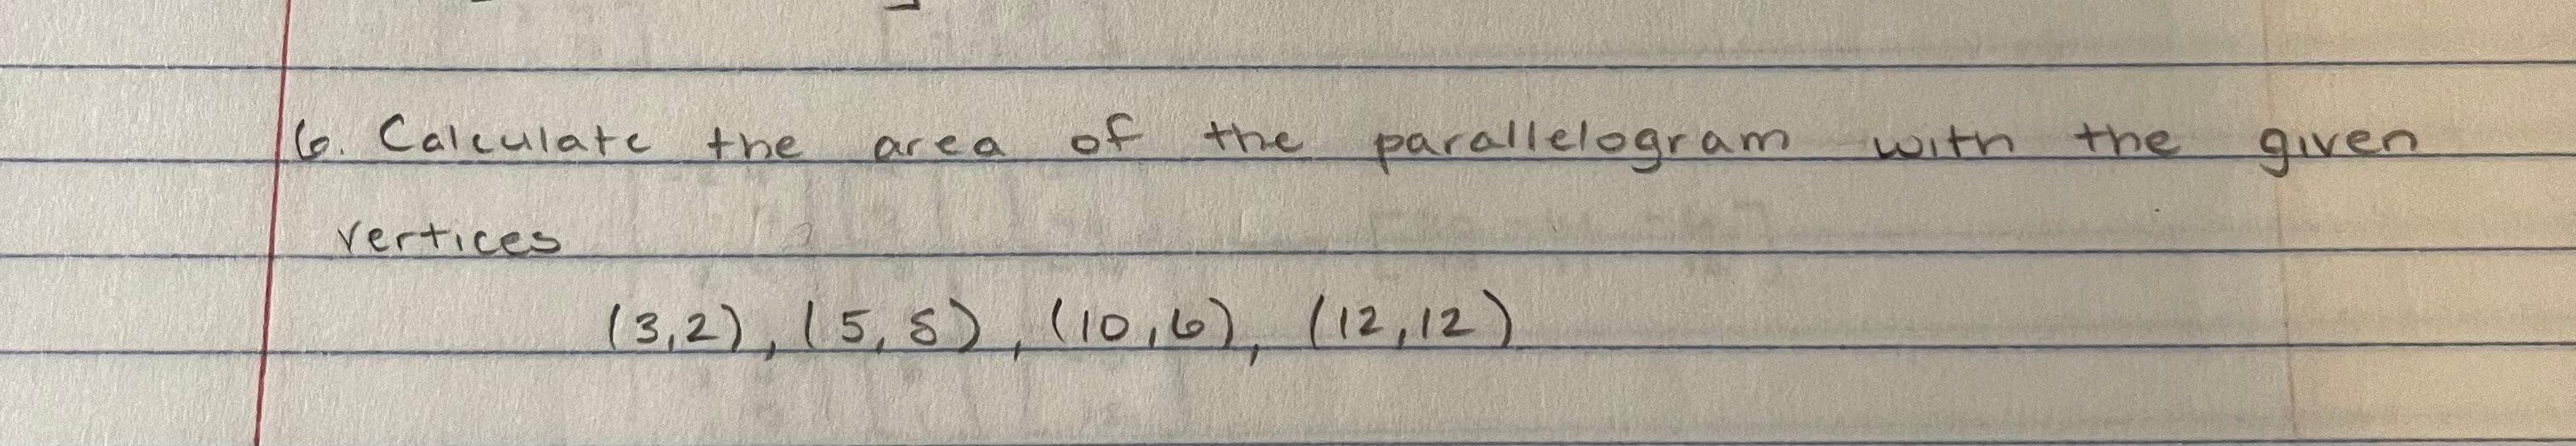 6. Calculate the area of the parallelogram with the given
vertices
(3,2), (5,8), (10,6), (12,12)